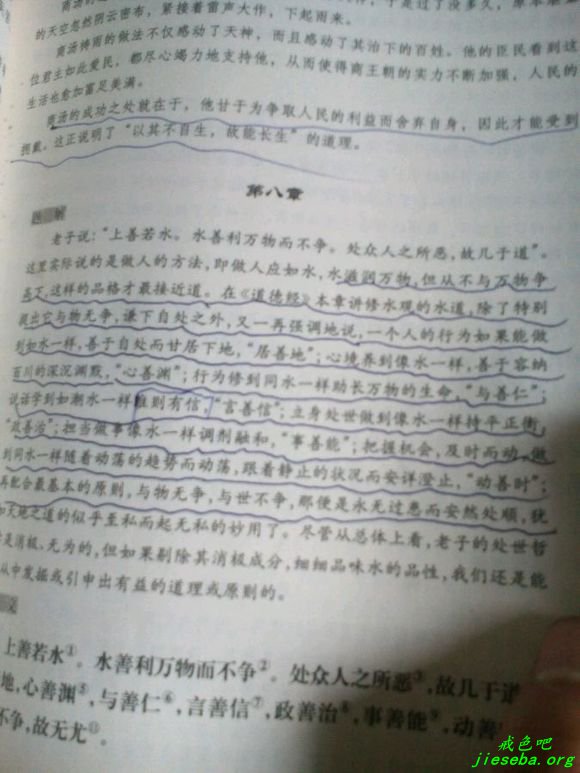 的天空忽然阴云密布，紧接着雷声大作，下起雨来。
商汤祷雨的做法不仅感动了天神，而且感动了其治下的百姓。他的臣民看到这
位君主如此爱民，都尽心竭力地支持他，从而使得商王朝的实力不断加强，人民的
生活也愈加富足美满。
商汤的成功之处就在于，他甘于为争取人民的利益而舍弃自身，因此才能受到
拥戴。这正说明了“以其不自生，故能长生”的道理。
第八章
题 解
老子说：“上善若水。水善利万物而不争。处众人之所恶，故几于道”。
这里实际说的是做人的方法，即做人应如水，水滋润万物，但从不与万物争
高下，这样的品格才最接近道。在《道德经》本章讲修水观的水道，除了特别
提出它与物无争，谦下自处之外，又一再强调地说，一个人的行为如果能做
到如水一样，善于自处而甘居下地，“居善地”；心境养到像水一样，善于容纳
百川的深沉渊默，“心善渊”；行为修到同水一样助长万物的生命，“与善仁”；
说话学到如潮水一样准则有信，“言善信”；立身处世做到像水一样持平正衡，
“政善治”；担当做事像水一样调剂融和，“事善能”；把握机会，及时而动，做
到同水一样随着动荡的趋势而动荡，跟着静止的状况而安详澄止，“动善时”；
再配合最基本的原则，与物无争，与世不争，那便是永无过患而安然处顺，犹
如天地之道的似乎至私而起无私的妙用了。尽管从总体上看，老子的处世哲
学是消极、无为的，但如果剔除其消极成分，细细品味水的品性，我们还是能
从中发掘或引申出有益的道理或原则的。
文
上善若水①。水善利万物而不争②。处众人之所恶③，故几于道
地，心善渊⑤，与善仁⑥，言善信⑦，政善治⑧，事善能⑨，动善
不争，故无尤⑪。
戒色吧
jieseba.org